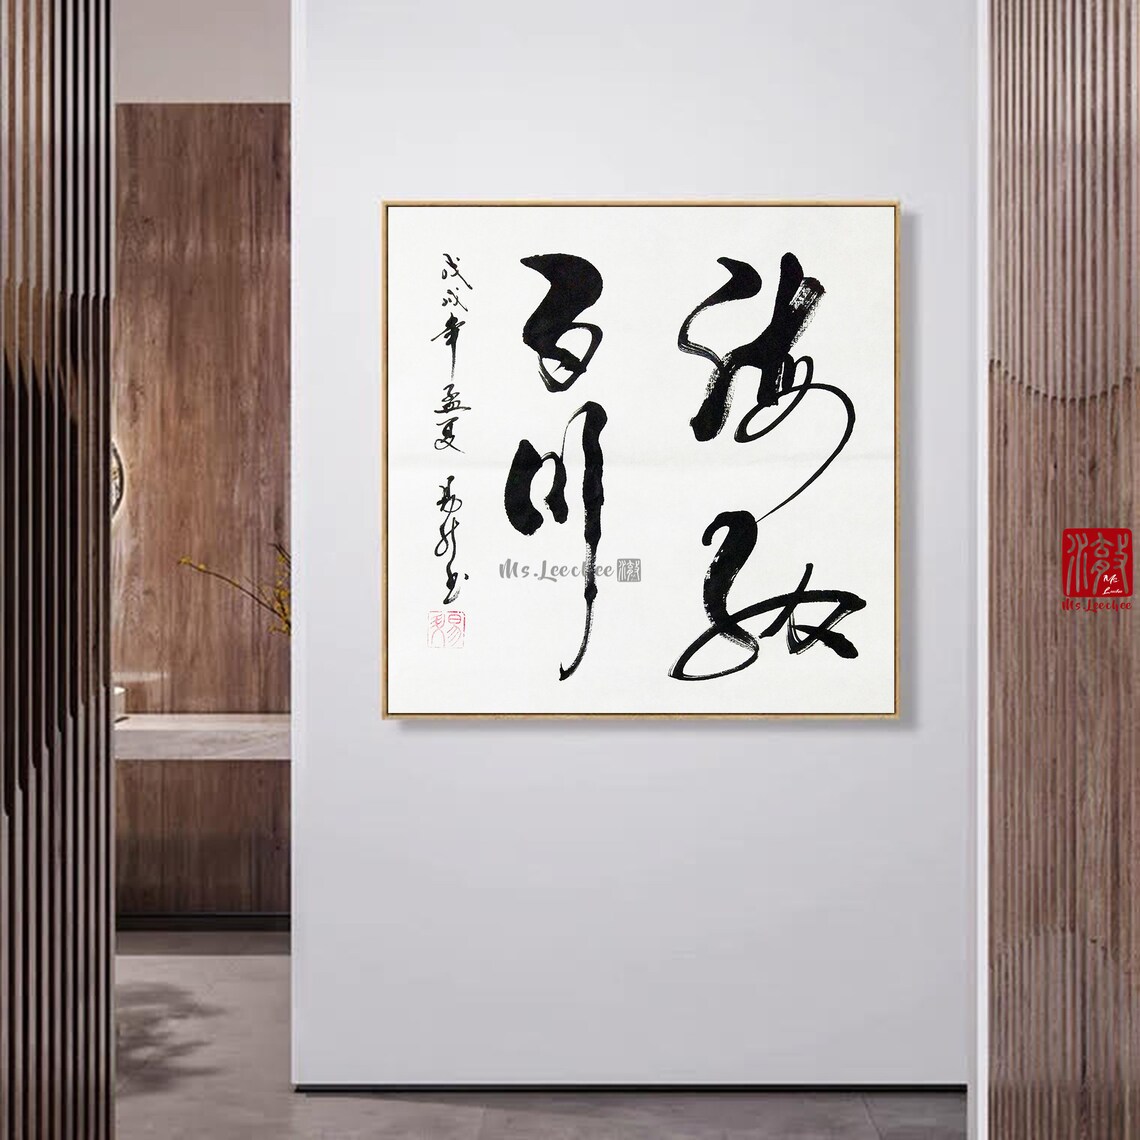 海纳
百川
戊戌年孟夏
Ms.Leeckee
Ms.Leeckee